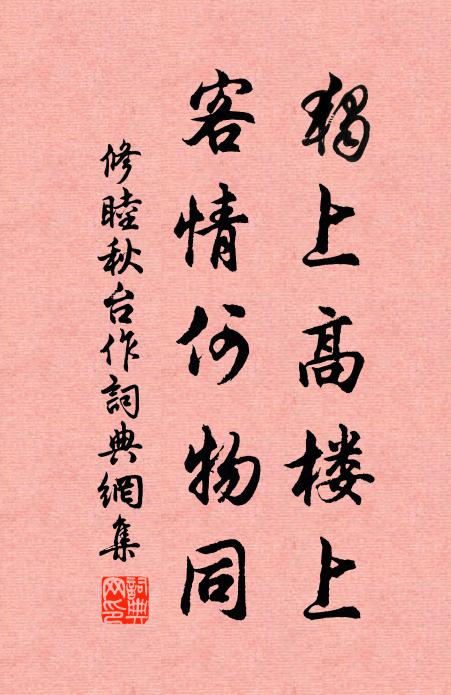 獨上高楼上
客情何物同
修睦秋台作詞典網集
詞典
网印